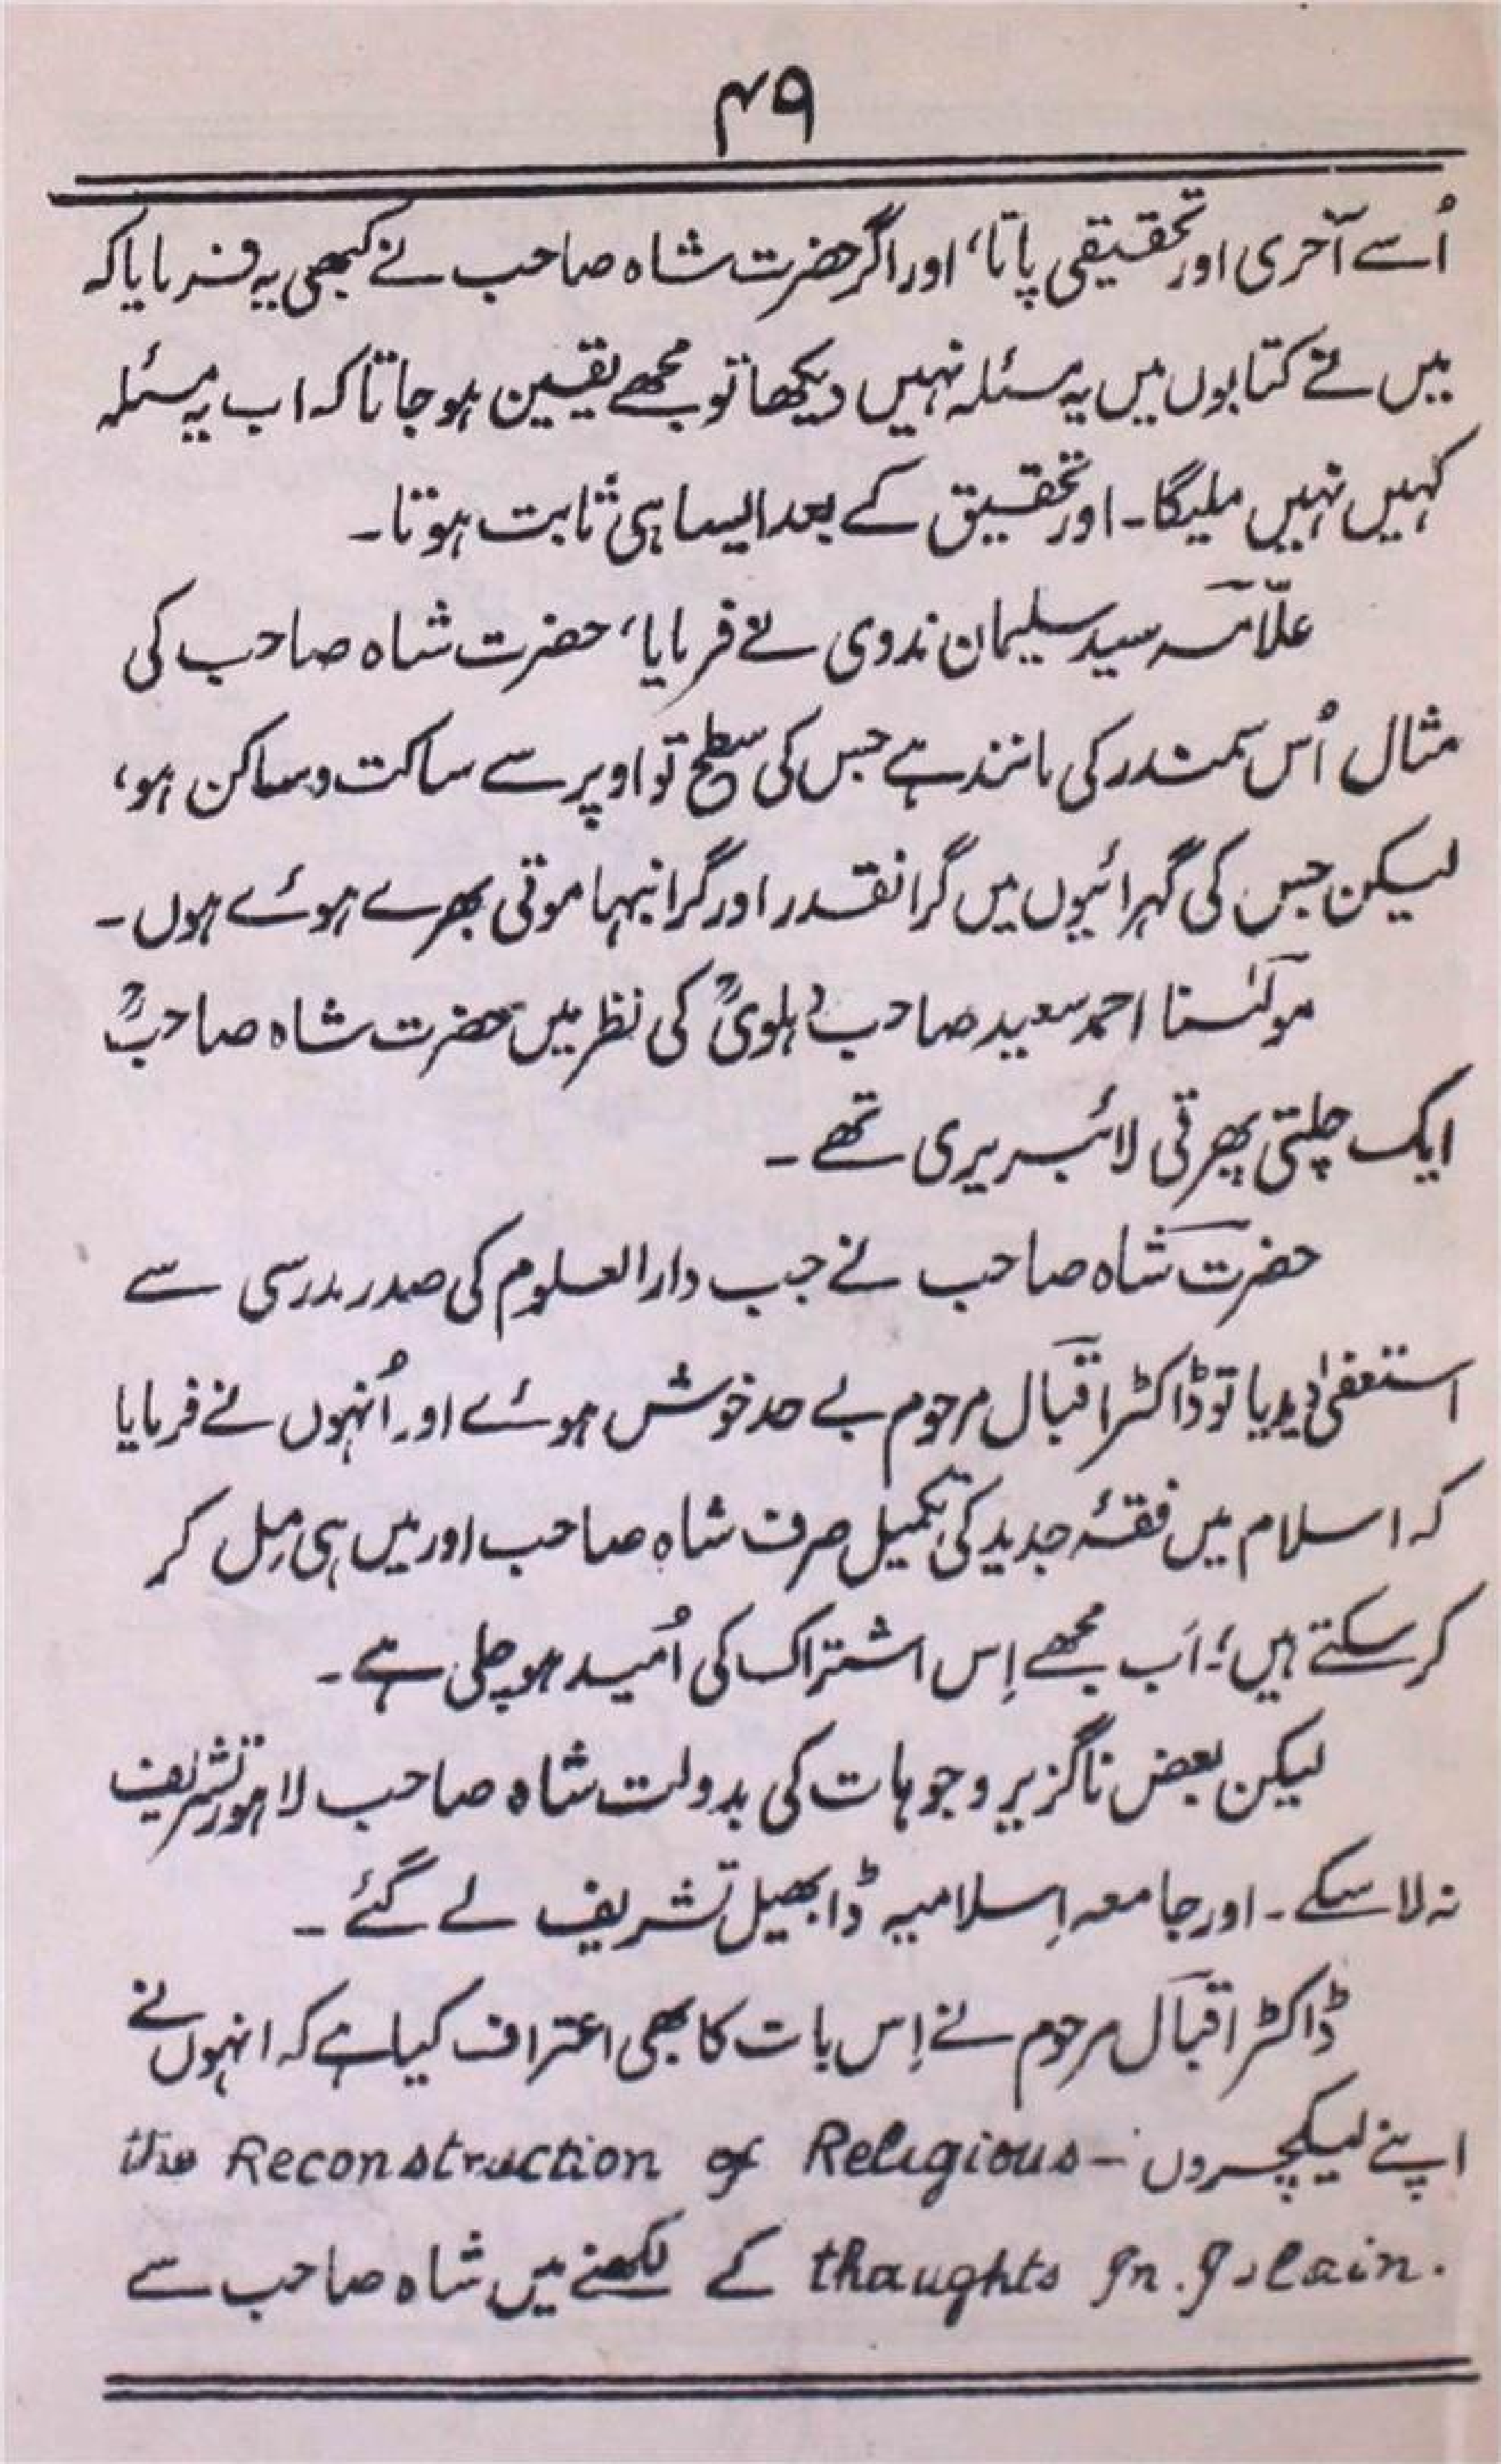 ۴۹
اُسے آخری اور تحقیقی پاتا، اور اگر حضرت شاہ صاحب نے کبھی یہ فرمایا کہ
میں نے کتابوں میں یہ مسئلہ نہیں دیکھا تو مجھے یقین ہو جاتا کہ اب یہ مسئلہ
کہیں نہیں ملیگا۔ اور تحقیق کے بعد ایسا ہی ثابت ہوتا۔
علّامہ سید سلیمان ندوی نے فرمایا، حضرت شاہ صاحب کی
مثال اُس سمندر کی مانند ہے جس کی سطح تو اوپر سے ساکت و ساکن ہو،
لیکن جس کی گہرائیوں میں گرانقدر اور گرانبہا موتی بھرے ہوئے ہوں۔
مولٰنا احمد سعید صاحب دہلویؒ کی نظر میں حضرت شاہ صاحبؒ
ایک چلتی پھرتی لائبریری تھے۔
حضرت شاہ صاحب نے جب دارالعلوم کی صدر مدرسی سے
استعفیٰ دیدیا تو ڈاکٹر اقبال مرحوم بے حد خوش ہوئے اور اُنہوں نے فرمایا
کہ اسلام میں فقۂ جدید کی تکمیل صرف شاہ صاحب اور میں ہی مِل کر
کر سکتے ہیں؛ اَب مجھے اِس اشتراک کی اُمید ہو چلی ہے۔
لیکن بعض ناگزیر وجوہات کی بدولت شاہ صاحب لاہور تشریف
نہ لا سکے۔ اور جامعہ اِسلامیہ ڈابھیل تشریف لے گئے۔
ڈاکٹر اقبال مرحوم نے اِس بات کا بھی اعتراف کیا ہے کہ انہوں نے
اپنے لیکچروں :- the Reconstruction of Religious
thaughts In. Islain. کے لکھنے میں شاہ صاحب سے